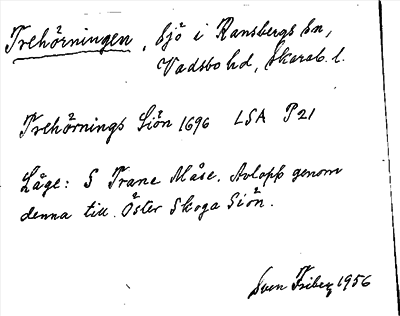 Trehörningen, sjö i Ransbergs sn,
Vadsbo hd, Skarab. l.
Trehörnings Siön 1696 LSA P21
Läge: S Trane Måse. Avlopp genom
denna till Öster Skoga Siön.
Sven Friberg 1956